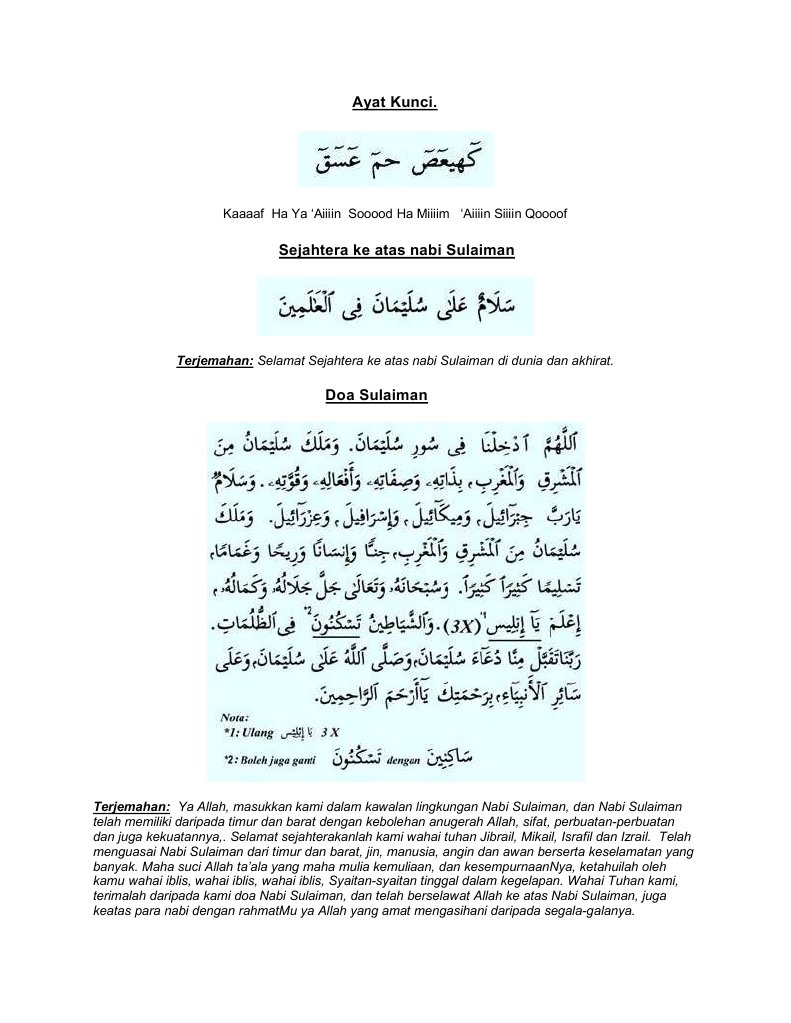 Ayat Kunci.
كَهيعَصَ حمَ عَسَقَ
Kaaaaf Ha Ya ‘Aiiiin Sooood Ha Miiiim ‘Aiiiin Siiiin Qoooof
Sejahtera ke atas nabi Sulaiman
سَلَامٌ عَلَى سُلَيْمَانَ فِى الْعَٰلَمِينَ
Terjemahan: Selamat Sejahtera ke atas nabi Sulaiman di dunia dan akhirat.
Doa Sulaiman
اَللَّهُمَّ ادْخِلْنَا فِى سُورِ سُلَيْمَانَ. وَمَلَكَ سُلَيْمَانُ مِنَ
الْمَشْرِقِ وَالْمَغْرِبِ، بِذَاتِهِ، وَصِفَاتِهِ، وَأَفْعَالِهِ، وَقُوَّتِهِ. وَسَلَامٌ
يَارَبَّ جِبْرَائِيلَ، وَمِيكَائِيلَ، وَإِسْرَافِيلَ، وَعِزْرَائِيلَ. وَمَلَكَ
سُلَيْمَانُ مِنَ الْمَشْرِقِ وَالْمَغْرِبِ، جِنًّا وَإِنْسَانًا وَرِيحًا وَغَمَامًا،
تَسْلِيمًا كَثِيرًا كَثِيرًا. وَسُبْحَانَهُ، وَتَعَالَى جَلَّ جَلَالُهُ، وَكَمَالُهُ،
إِعْلَمْ يَا إِبْلِيس*1 (3X). وَالشَّيَاطِينُ تَسْكُنُونَ*2 فِى الظُّلُمَاتِ.
رَبَّنَا تَقَبَّلْ مِنَّا دُعَاءَ سُلَيْمَانَ، وَصَلَّى اللَّهُ عَلَى سُلَيْمَانَ، وَعَلَى
سَائِرِ الْأَنْبِيَاءِ، بِرَحْمَتِكَ يَاأَرْحَمَ الرَّاحِمِينَ.
Nota:
*1: Ulang يَا إِبْلِيس 3 X
*2: Boleh juga ganti تَسْكُنُونَ dengan سَاكِنِينَ
Terjemahan: Ya Allah, masukkan kami dalam kawalan lingkungan Nabi Sulaiman, dan Nabi Sulaiman
telah memiliki daripada timur dan barat dengan kebolehan anugerah Allah, sifat, perbuatan-perbuatan
dan juga kekuatannya,. Selamat sejahterakanlah kami wahai tuhan Jibrail, Mikail, Israfil dan Izrail. Telah
menguasai Nabi Sulaiman dari timur dan barat, jin, manusia, angin dan awan berserta keselamatan yang
banyak. Maha suci Allah ta’ala yang maha mulia kemuliaan, dan kesempurnaanNya, ketahuilah oleh
kamu wahai iblis, wahai iblis, wahai iblis, Syaitan-syaitan tinggal dalam kegelapan. Wahai Tuhan kami,
terimalah daripada kami doa Nabi Sulaiman, dan telah berselawat Allah ke atas Nabi Sulaiman, juga
keatas para nabi dengan rahmatMu ya Allah yang amat mengasihani daripada segala-galanya.